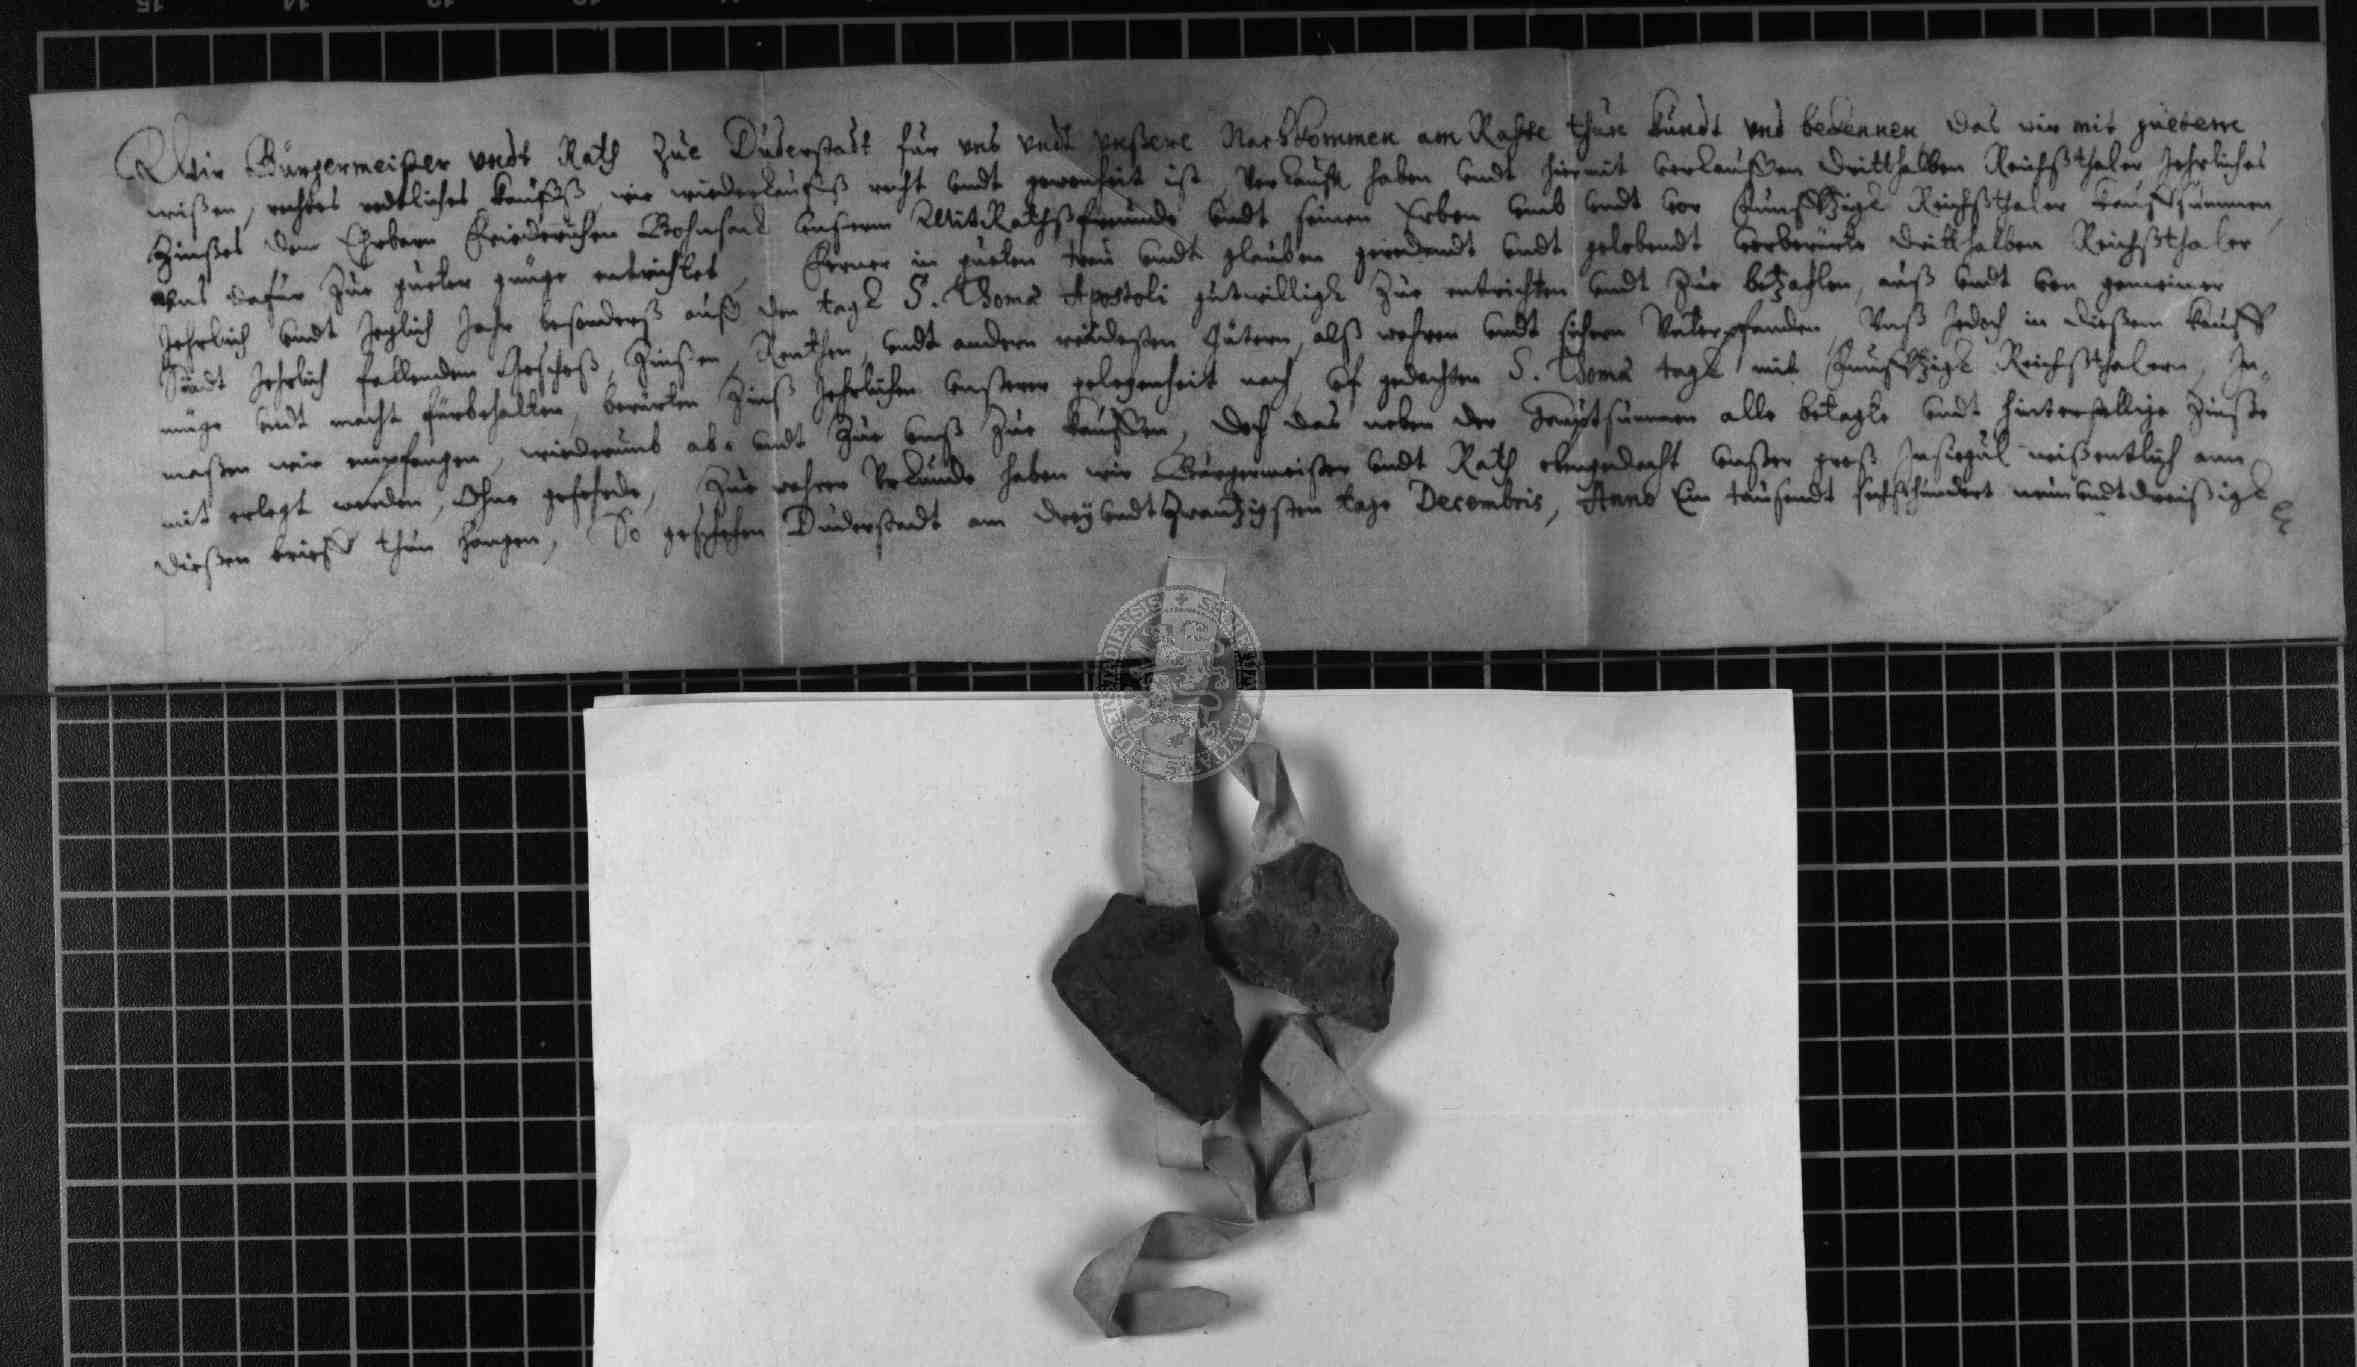 Wir Bürgermeister vndt Rath Zue Duderstadt für vns vndt vnßere Nachkommen am Rahtte thun kundt vnd bekennen das wir mit guetem
wißen, rechtes redtliches kauffß, wie wiederkauffß recht vndt gewonheit ist, verkaufft haben vndt hiermit verkauffen dritthalben Reichßthaler Jehrliches
Zinßes dem Ehrbarn Friederichen Bohnsack vnserm MitRathßfreunde vndt seinen Erben vmb vndt vor Funfftzigk Reichßthaler kauffsummen,
vns dafür zur gueten gnüge entrichtet, Ferner in gueten treu vndt glauben geredendt vndt gelobendt berürte dritthalben Reichßthaler
Jehrlich vndt Jeglich Jahr besonderß auff den tagk S. Thomæ Apostoli gutwilligk zue entrichten vndt zue betzahlen, auß vndt von gemeiner
Stadt Jehrlich fallenden Geschoß, Zinßen, Renthen, vndt andern gütern, alß wahren vndt sichern Vnterpfanden, Vnß Jedoch in dießem kauff
müge vndt macht fürbehalten, berürten Zinß Jehrlichen vnserer gelegenheit nach, vf gedachten S. Thomæ tagk mit Funfftzigk Reichßthalern, In-
maßen wir empfangen, wiederumb ab- vndt zue vnß zue kauffen, doch das neben der Heuptsummen alle betagte vndt hinterstellige Zinße
mit erlegt werden, Ohne gefehrde, Zue wahrer Vrkunde haben wir Bürgermeister vndt Rath obengedacht vnßer groß Insiegul wißentlich ann
dießen brieff thun hangen, So geschehen Duderstadt am dreyvndtzwantzigsten tage Decembris, Anno Ein tausendt sechßhundert neunvndtdreißigk